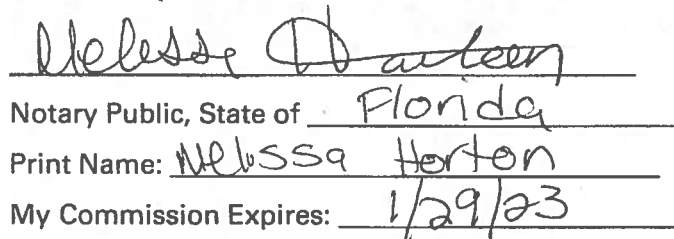 Melissa
Notary Public, State of Florida
Print Name: Melissa Horton
My Commission Expires: 1/29/23